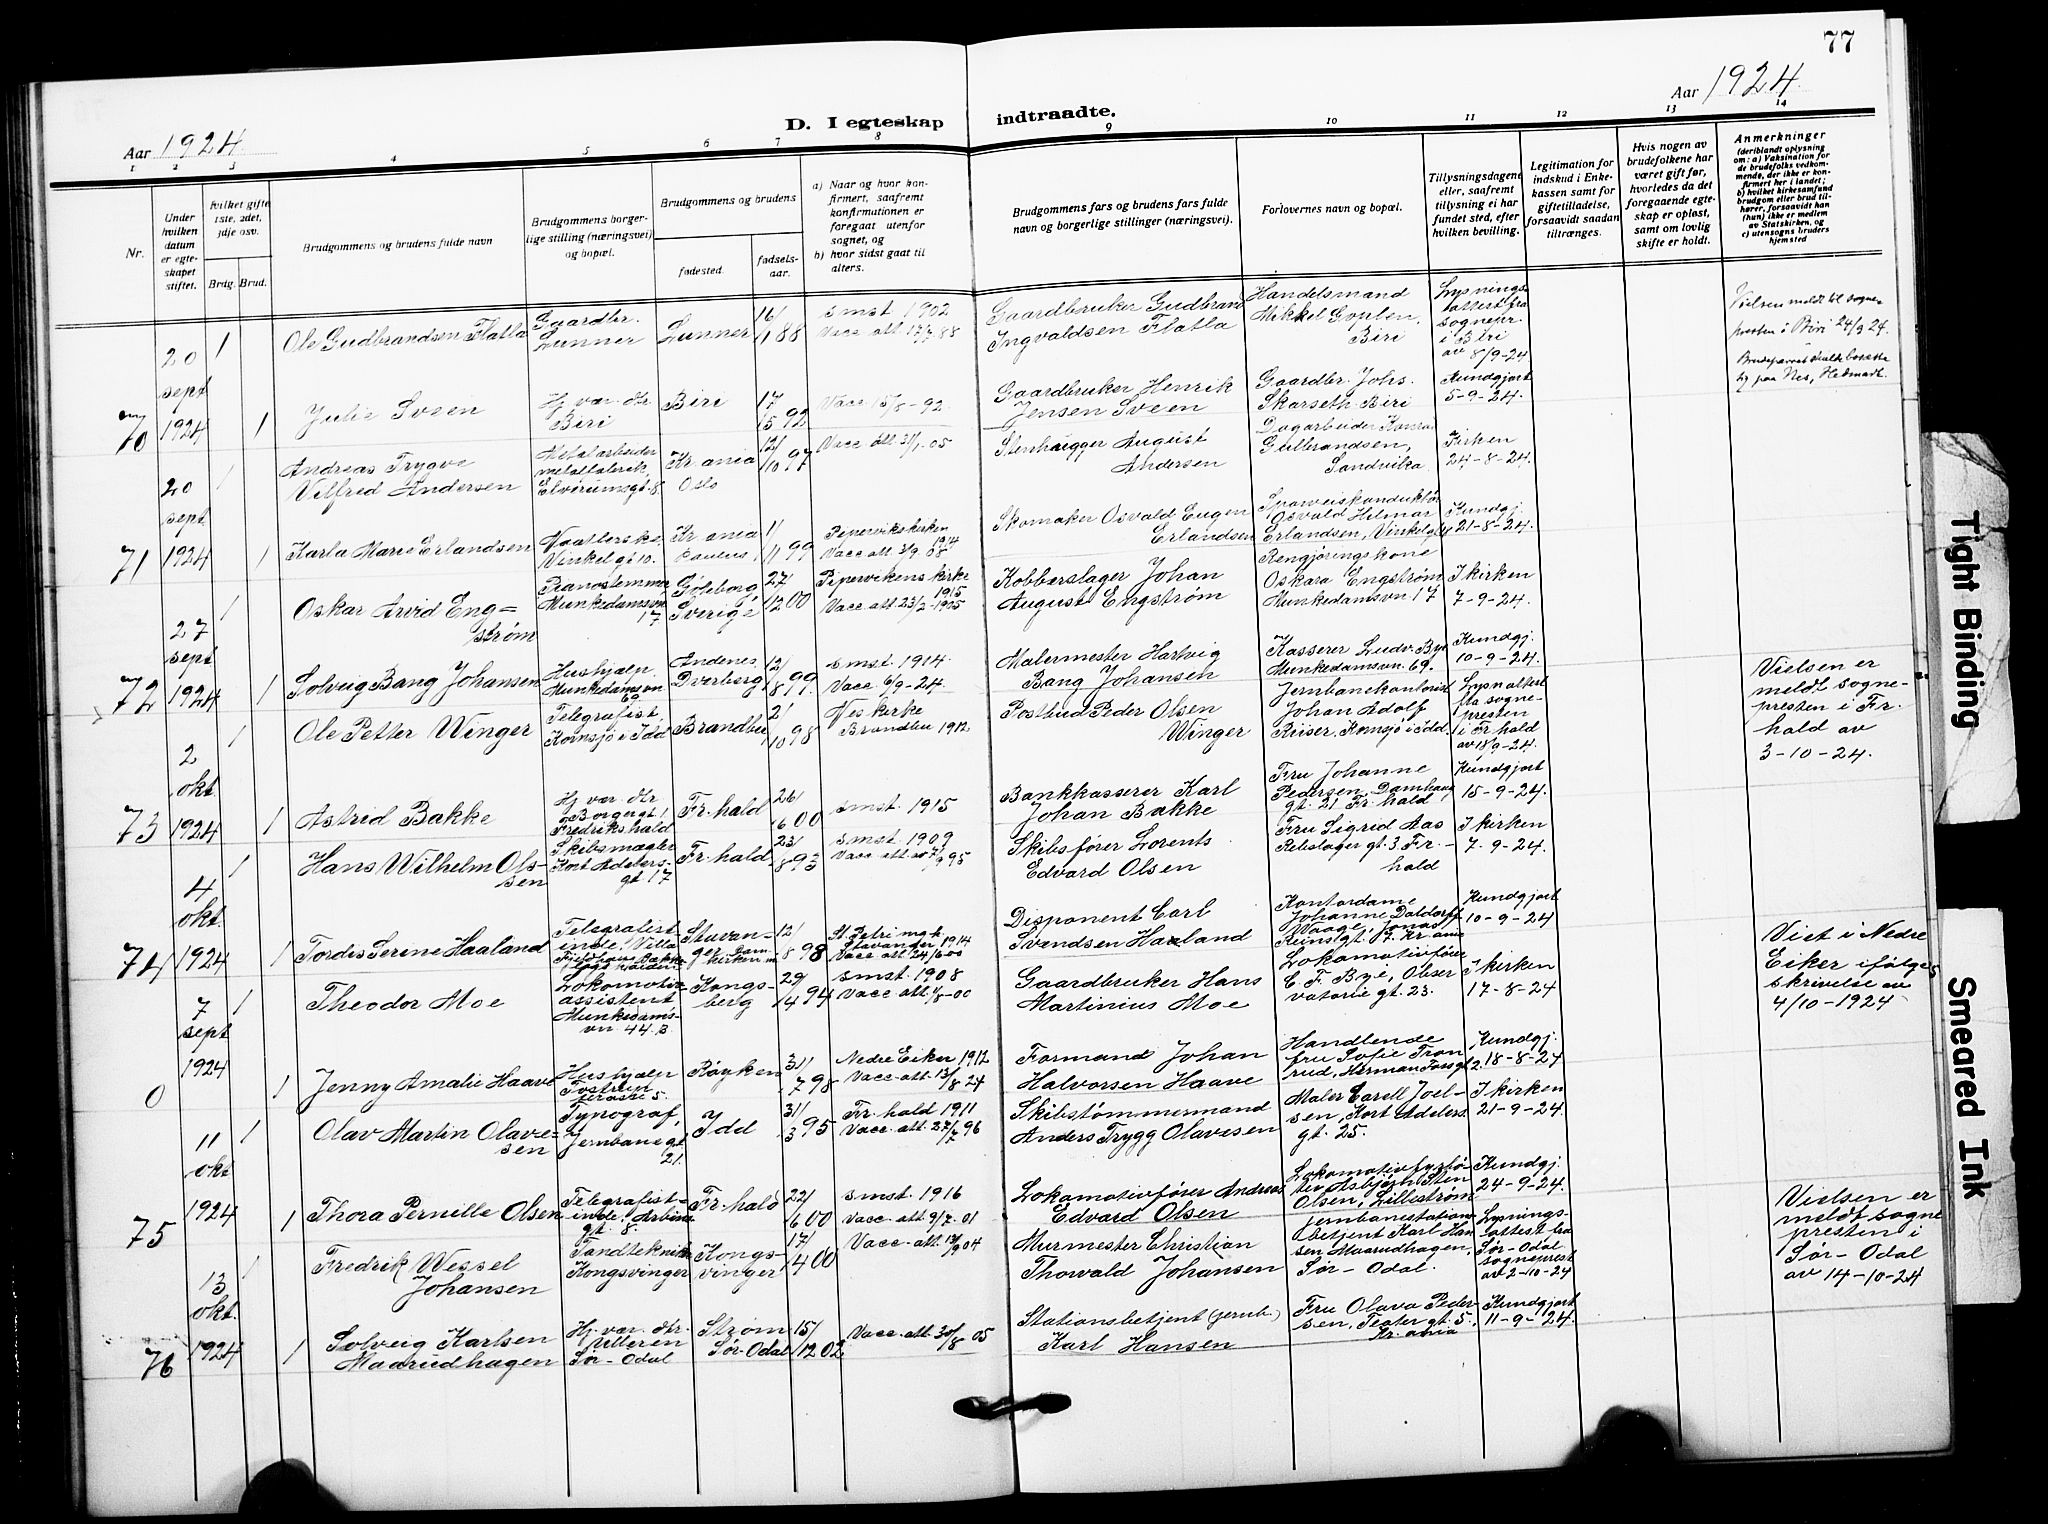 77
Aar 1924
Aar 1924.
D. I egteskap indtraadte.
1 2 3 4 5 6 7 8 9 10 11 12 13 14
Nr.
Under hvilken datum er egteskapet stiftet.
Hvilket gifte 1ste, 2det, 3dje osv.
Brdg. Brud.
Brudgommens og brudens fulde navn
Brudgommens borgerlige stilling (næringsvei) og bopæl.
Brudgommens og brudens
fødested.
fødselsaar.
a) Naar og hvor konfirmert, saafremt konfirmationen er foregaat utenfor sognet, og
b) hvor sidst gaat til alters.
Brudgommens fars og brudens fars fulde navn og borgerlige stillinger (næringsvei).
Forlovernes navn og bopæl.
Tillysningsdagene eller, saafremt tillysning ei har fundet sted, efter hvilken bevilling.
Legitimation for indskud i Enkekassen samt for giftetilladelse, forsaavidt saadan tiltrænges.
Hvis nogen av brudefolkene har været gift før, hvorledes da det foregaaende egteskap er opløst, samt om lovlig skifte er holdt.
Anmerkninger
(deriblandt oplysning om: a) Vaksination for de brudefolks vedkommende, der ikke er konfirmert her i landet; b) hvilket kirkesamfund brudgom eller brud tilhører, forsaavidt han (hun) ikke er medlem av Statskirken, og c) utensogns bruders hjemsted
70
20 sept 1924
1
Ole Gudbrandsen Flatla
Gaardbr. Lunner
Lunner
16/1 88
smst 1902
Vacc att 17/7 88
Gaardbruker Gudbrand Ingvaldsen Flatla
Handelsmand Mikkel Goplen, Biri
Lysningsattest fra sognepr. i Biri av 8/9-24
Vielsen meldt til sognepresten i Biri 24/9 24.
Brudeparret skulde bosætte sig paa Nes, Hedmark.
1
Julie Sveen
Hj. vær. dtr Biri
Biri
17/5 92
Vacc 15/8-92.
Gaardbruker Henrik Jensen Sveen
Gaardbr. Johs. Skarseth. Biri
Kundgjort 5-9-24.
71
20 sept 1924
1
Andreas Trygve Vilfred Andersen
Metalarbeider metalfabrik, Elverumsgt. 8.
Kr.ania Oslo
12/10 97
Vacc att 31/1-05
Stenhugger August Andersen
Dagarbeider Konrad Gulbrandsen, Sandvika
Kirken 24-8-24.
1
Karla Marie Erlandsen
Vaatterske, Vinkelgt 10.
Kr.ania Paulus,
1/11 99
Pipervikskirken 1914
Vacc att 3/9 08
Skomaker Osvald Eugen Erlandsen
Sporveiskonduktør Osvald Hilmar Erlandsen, Vinkelgt 10
Kundgj. 21-8-24.
72
27 sept 1924
1
Oskar Arvid Engstrøm
Pianostemmer Munkedamsvn 17
Gøteborg, Sverige
27/12 00
Pipervikens kirke 1915
Vacc att. 23/2-1905
Kobberslager Johan August Engstrøm
Rengjøringskone Oskara Engstrøm Munkedamsvn 17
I kirken 7-9-24.
1
Solveig Bang Johansen
Hushjælp Munkedamsvn 69
Andenes Dverberg
12/8 99.
smst. 1914.
Vacc 6/9-24.
Malermester Hartvig Bang Johansen
Kasserer Ludv. Bye Munkedamsvn. 69.
Kundgj. 10-9-24.
73
2 okt 1924
1
Ole Petter Winger
Telegrafist, Kornsjø i Idd
Brandbu
2/10 98
Nes kirke Brandbu 1912
Postbud Peder Olsen Winger
Jernbanekontorist Johan Adolf Reiser, Kornsjø i Idd.
Lysn.attest fra sognepresten i Fr.hald av 18/9-24.
Vielsen er meldt sognepresten i Fr.hald av 3-10-24.
1
Astrid Bakke
Hj. vær. dtr Borgergt 1, Fredrikshald
Fr.hald
26/6 00
smst. 1915
Bankkasserer Karl Johan Bakke
Fru Johanne Pedersen, Damhaug gt. 21 Fr.hald
Kundgjort 15-9-24.
74
4 okt. 1924
1
Hans Wilhelm Olssen
Skibsmægler Kort Adelersgt 17
Fr.hald
23/8 93
smst. 1909
Skibsfører Lorents Edvard Olsen
Fru Sigrid Aas Rebslager gt. 3 Fr.hald
I kirken 7-9-24.
1
Tordis Serine Haaland
Stavanger
12/8 98
St. Petri mgh. Stavanger 1914
Vacc att. 24/6 00
Disponent Carl Svendsen Haaland
Kontordame Johanne Daldorff Waage, Jonas Reinsgt. 17. Kr.ania
Kundgjort 10-9-24
0
7 sept 1924
1
Theodor Moe
Lokomotivassistent Munkedamsvn 44.B.
Kongsberg
29/4 94
smst. 1908
Vacc att. 1/8-00
Gaardbruker Hans Martinius Moe
Lokomotivfører C. F. Bye, Observatorie gt. 23.
I kirken 17-8-24
Viet i Nedre Eiker ifølge skrivelse av 4/10-1924
1
Jenny Amalie Haave
Hushjælp
Røyken
31/7 98
Nedre Eiker 1912
Vacc-att. 13/8 24
Formand Johan Halvorsen Haave
Handlende fru Sofie Tronrud, Herman Fossgt 2.
Kundgj. 18-8-24
75
11 okt 1924
1
Olav Martin Olavesen
Typograf, Jernbanegt 21.
Idd
31/3 95
Fr.hald 1911
Vacc. att. 27/7 96
Skibstømmermand Anders Trygg Olavesen
Maler Carell Joelsen, Kort Adelers gt. 25.
I kirken 21-9-24.
1
Thora Pernille Olsen
Telegrafistinde, Arbins gt. 8
Fr.hald
22/6 00
smst. 1916
Vacc. att. 9/7.01
Lokomotivfører Andreas Edvard Olsen
Lokomotivfyrbøter Asbjørn Sten Olsen, Lillestrøm
Kundgj. 24-9-24.
76
13 okt. 1924
1
Fredrik Wessel Johansen
Tandtekniker Kongsvinger
Kongsvinger
17/4 00
Murmester Christian Thorvald Johansen
Jernbanestationsbetjent Karl Hansen Maarudhagen, Sør-Odal.
Lysningsattest fra Sør-Odal sogneprest av 2-10-24
Vielsen er meldt sognepresten i Sør-Odal av 14-10-24
1
Solveig Karlsen Maarudhagen
Hj. vær. dtr. Sør-Odal
Strøm Sør-Odal
15/12 02
Vacc. att. 30/8 05
Stationsbetjent (jernb.) Karl Hansen
Fru Olava Pedersen, Teater gt. 5. Kr.ania
Kundgjort 11-9-24.
Tight Binding
Smeared Ink